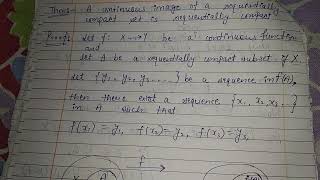 Thm:- A continuous image of a sequentially
compact set is sequentially compact.
Proof:- Let f: X→Y be a continuous function
and
Let A be a sequentially compact subset of X
Let {y₁, y₂, y₃, ...} be a sequence in f(A),
then there exist a sequence {x₁, x₂, x₃, ...}
in A such that
f(x₁) = y₁, f(x₂) = y₂, f(x₃) = y₃
f
X A f(A)